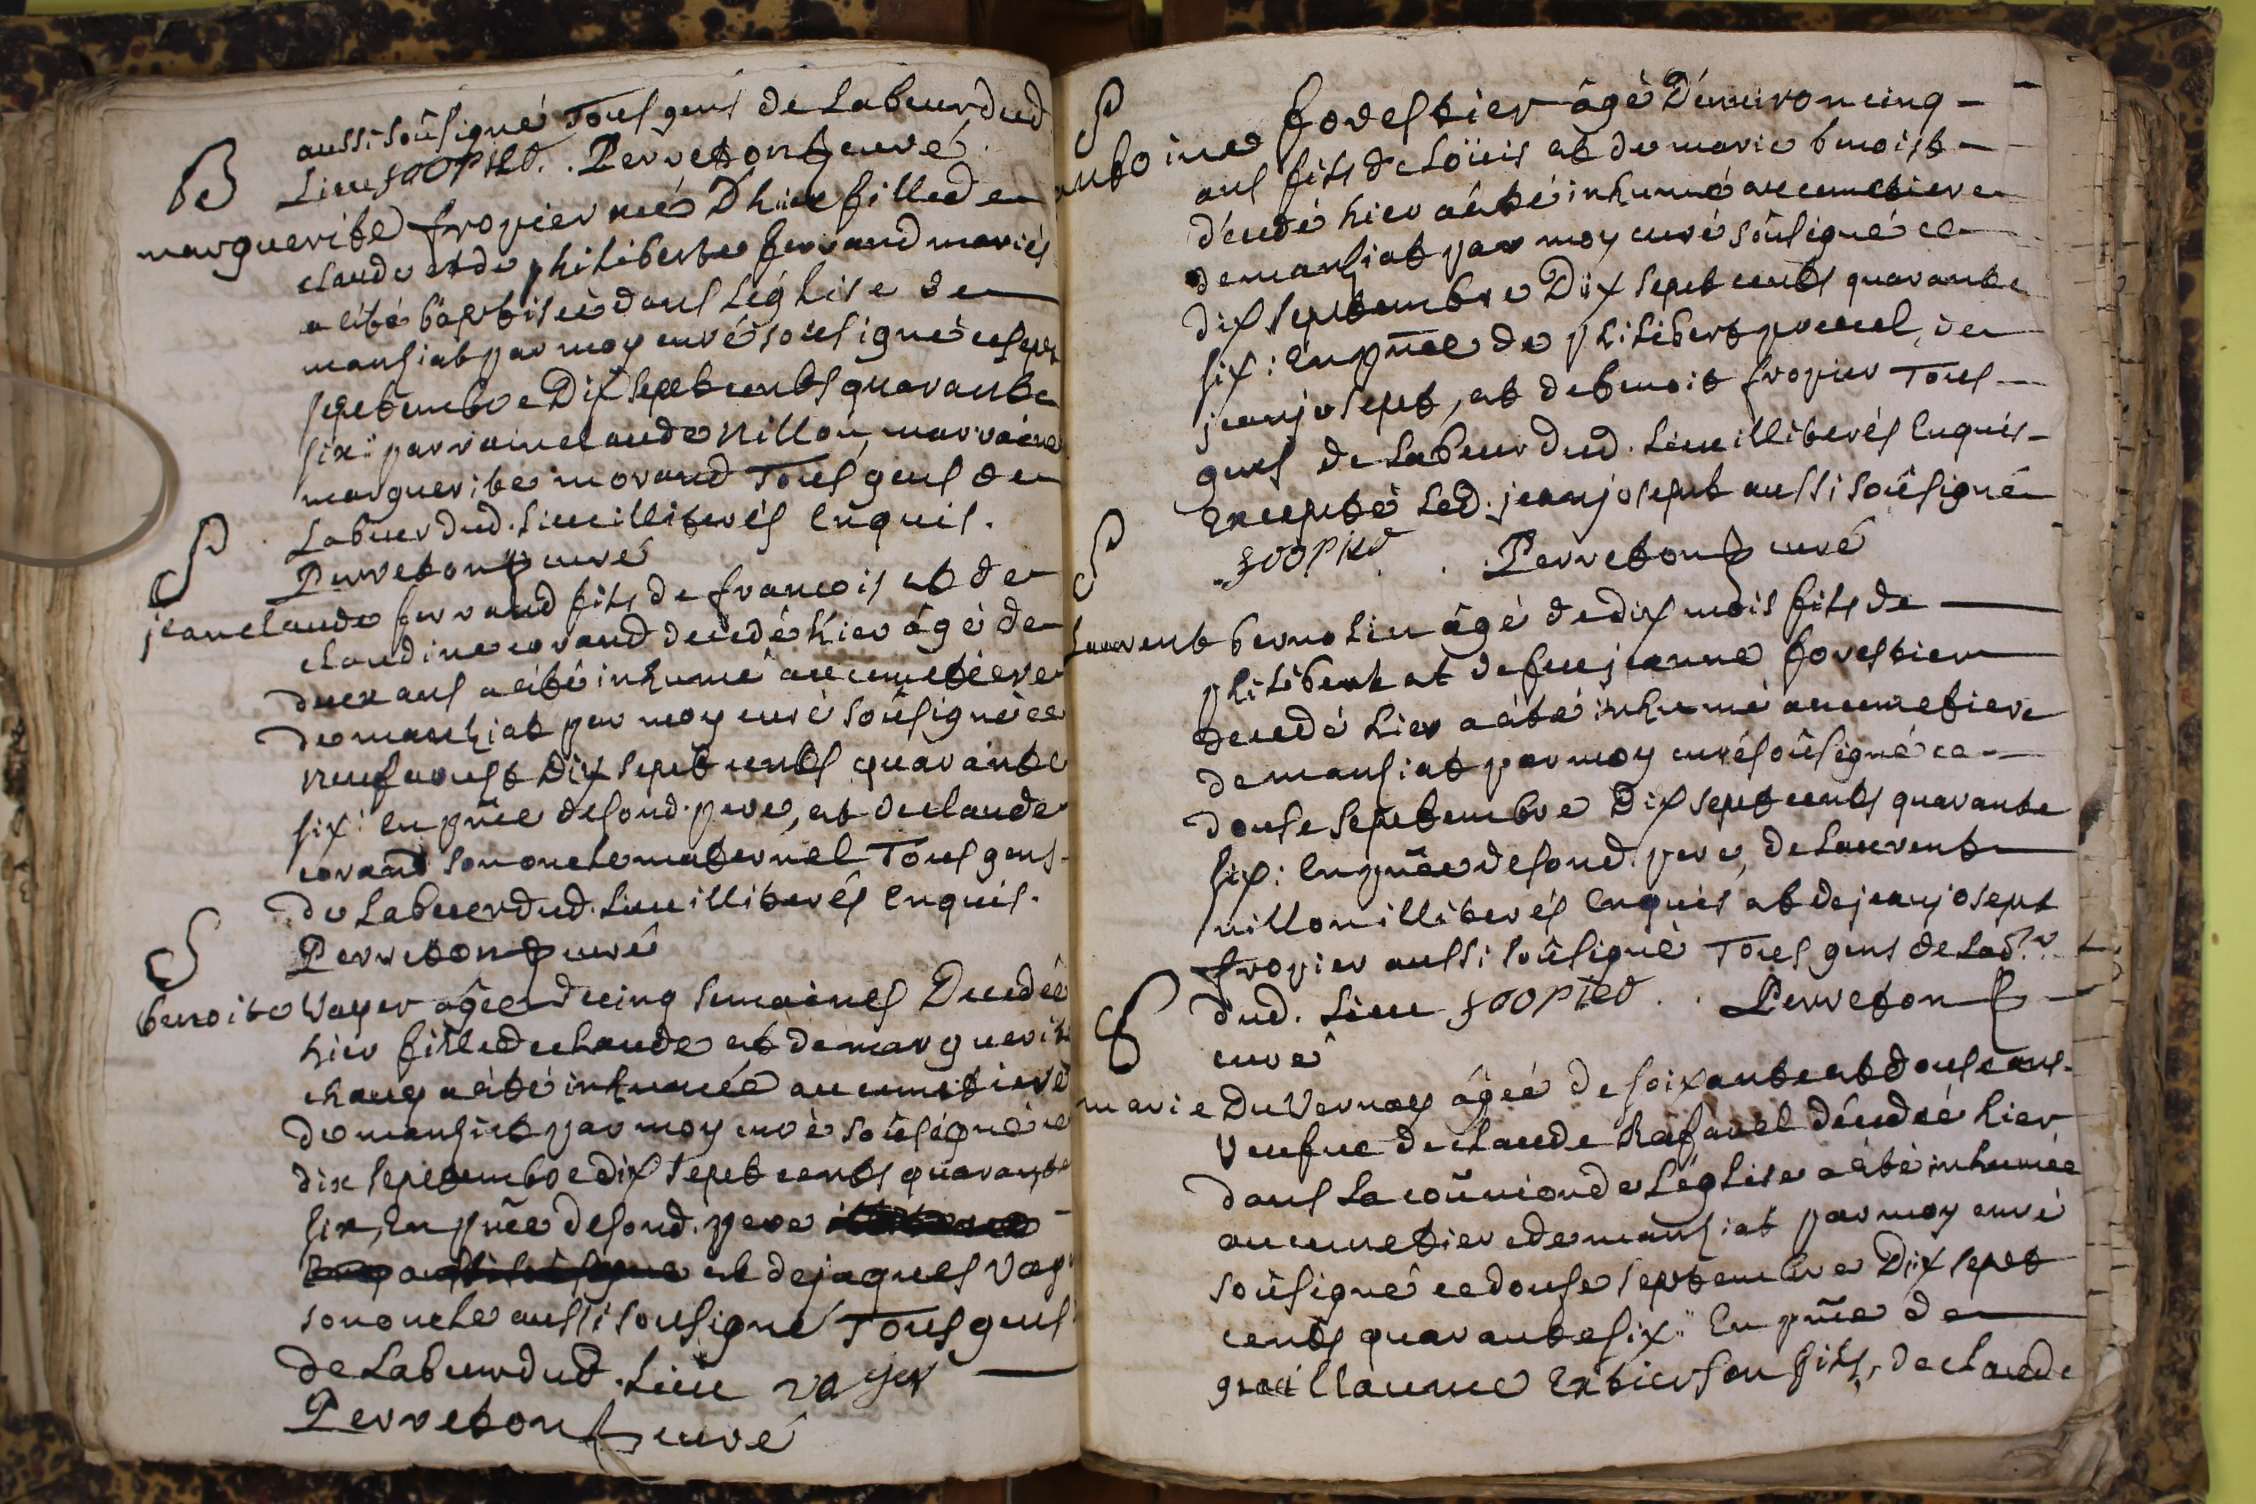 aussi soûsigné Tous gens de Labeur dud
Lieu froopier. Perreton curé.
B
marguerite fropier née D'hier fille de
claude et de philiberte ferrand mariés
a été baptisée dans Léglise de
mansiat par moy curé soûsigné ce sept
septembre Dix sept cents quarante
six: parrain claude Nillon, marraine
marguerite morand Tous gens de
Labeur dud. Lieu illiterés Enquis.
Perreton curé
S
jean claude ferrand fils de francois et de
claudine corand decedé hier âgé de
deux ans a été inhumé au cimetiere
de mansiat par moy curé soûsigné ce
neuf aoust Dix sept cents quarante
six: En pñce de sond. pere, et de claude
corand son oncle maternel Tous gens
de Labeur dud. Lieu illiterés Enquis.
Perreton curé
S
benoite Vayer âgée de cinq semaines Decedée
hier fille de claude et de marguerite
chang a été inhumée au cimetiere
de mansiat par moy curé soûsigné ce
dix septembre dix sept cents quarante
six, En pñce de sond. pere
et de jaques Vay
son oncle aussi sousigné Tous gens
de Labeur dud. Lieu vayer
Perreton curé
S
antoine forestier âgé D'environ cinq
ans fils de Loüis et de marie benoist
décedé hier a été inhumé au cimetiere
de mansiat par moy curé soûsigné ce
dix septembre Dix sept cents quarante
six: En pñce de philibert preuel, de
jean josept, et de benoit fropier Tous
gens de Labeur dud. Lieu illiterés Enquis
Excepté Led. jean josept aussi soûsigné
froopier. Perreton curé
S
Laurent bernolin âgé de dix mois fils de
philibert et de feue jeanne forestier
decedé hier a été inhumé au cimetiere
de mansiat par moy curé soûsigné ce
douse septembre Dix sept cents quarante
six: En pñce de sond. pere, de Laurent
nillon illiterés Enquis et de jean josept
fropier aussi soûsigné Tous gens de Lab.r
dud. Lieu froopier. Perreton
curé
S
marie Du Vernay âgée de soixante et douse ans
Veufue de claude Rafanel décedée hier
dans La coñunion de Léglise a été inhumée
au cimetiere de mansiat par moy curé
soûsigné ce douse septembre Dix sept
cents quarante six: En pñce de
guillaume Extier son fils, de claude